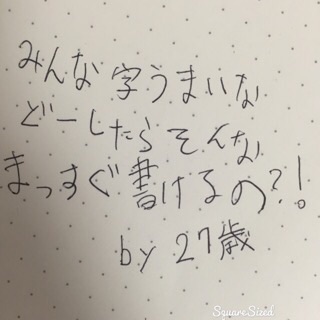 みんな字うまいな
どーしたらそんな
まっすぐ書けるの?!
by 27歳
SquareSized